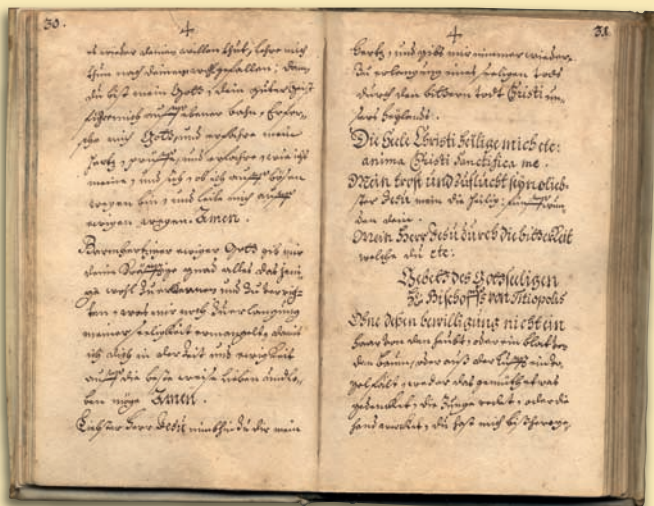 30.
wieder deinen willen thut, lehre mich
thun nach deinem wohlgefallen: dann
du bist mein Gott, dein guter Geist
führe mich auff ebener bahn, Erfor,
sche mich Gott, und erfahre mein
hertz, prüffe, und erfahre, wie ichs
meine, und sih, ob ich auff bösen
wegen bin, und leite mich auff
ewigen wegen. Amen.
Barmhertziger ewiger Gott gib mir
deine gnad alles das jeni,
ge wohl zu erkennen und zu verrich,
ten, was mir noch zu erlangung
meiner seeligkeit ermangelt, damit
ich dich in der Zeit und ewigkeit
auff die beste weise lieben und lo,
ben möge Amen.
Liebster Herr Jesu nimb hin zu dir mein
31.
hertz, und gibs mir nimmer wieder.
Zu erlangung eines seeligen tods
durch den bittern todt Christi un,
sers heylands.
Die Seele Christi heilige mich etc:
anima Christi sanctifica me.
Mein trost und zuflucht seyn o lieb,
ster Jesu mein die heilig: fünff wun,
den dein.
Mein Herr Jesu durch die bitterkeit
welche du etc:
Gebett des Gottseeligen
H. Bischoffs von Titiopolis
Ohne dessen bewilligung nicht ein
haar von dem haubt, oder ein blat von
dem baum, oder auß der lufft ein vo,
gel falt, weder das gemüth etwas
gedencket, die Zunge redet, oder die
hand wircket, du hast mich bißhero